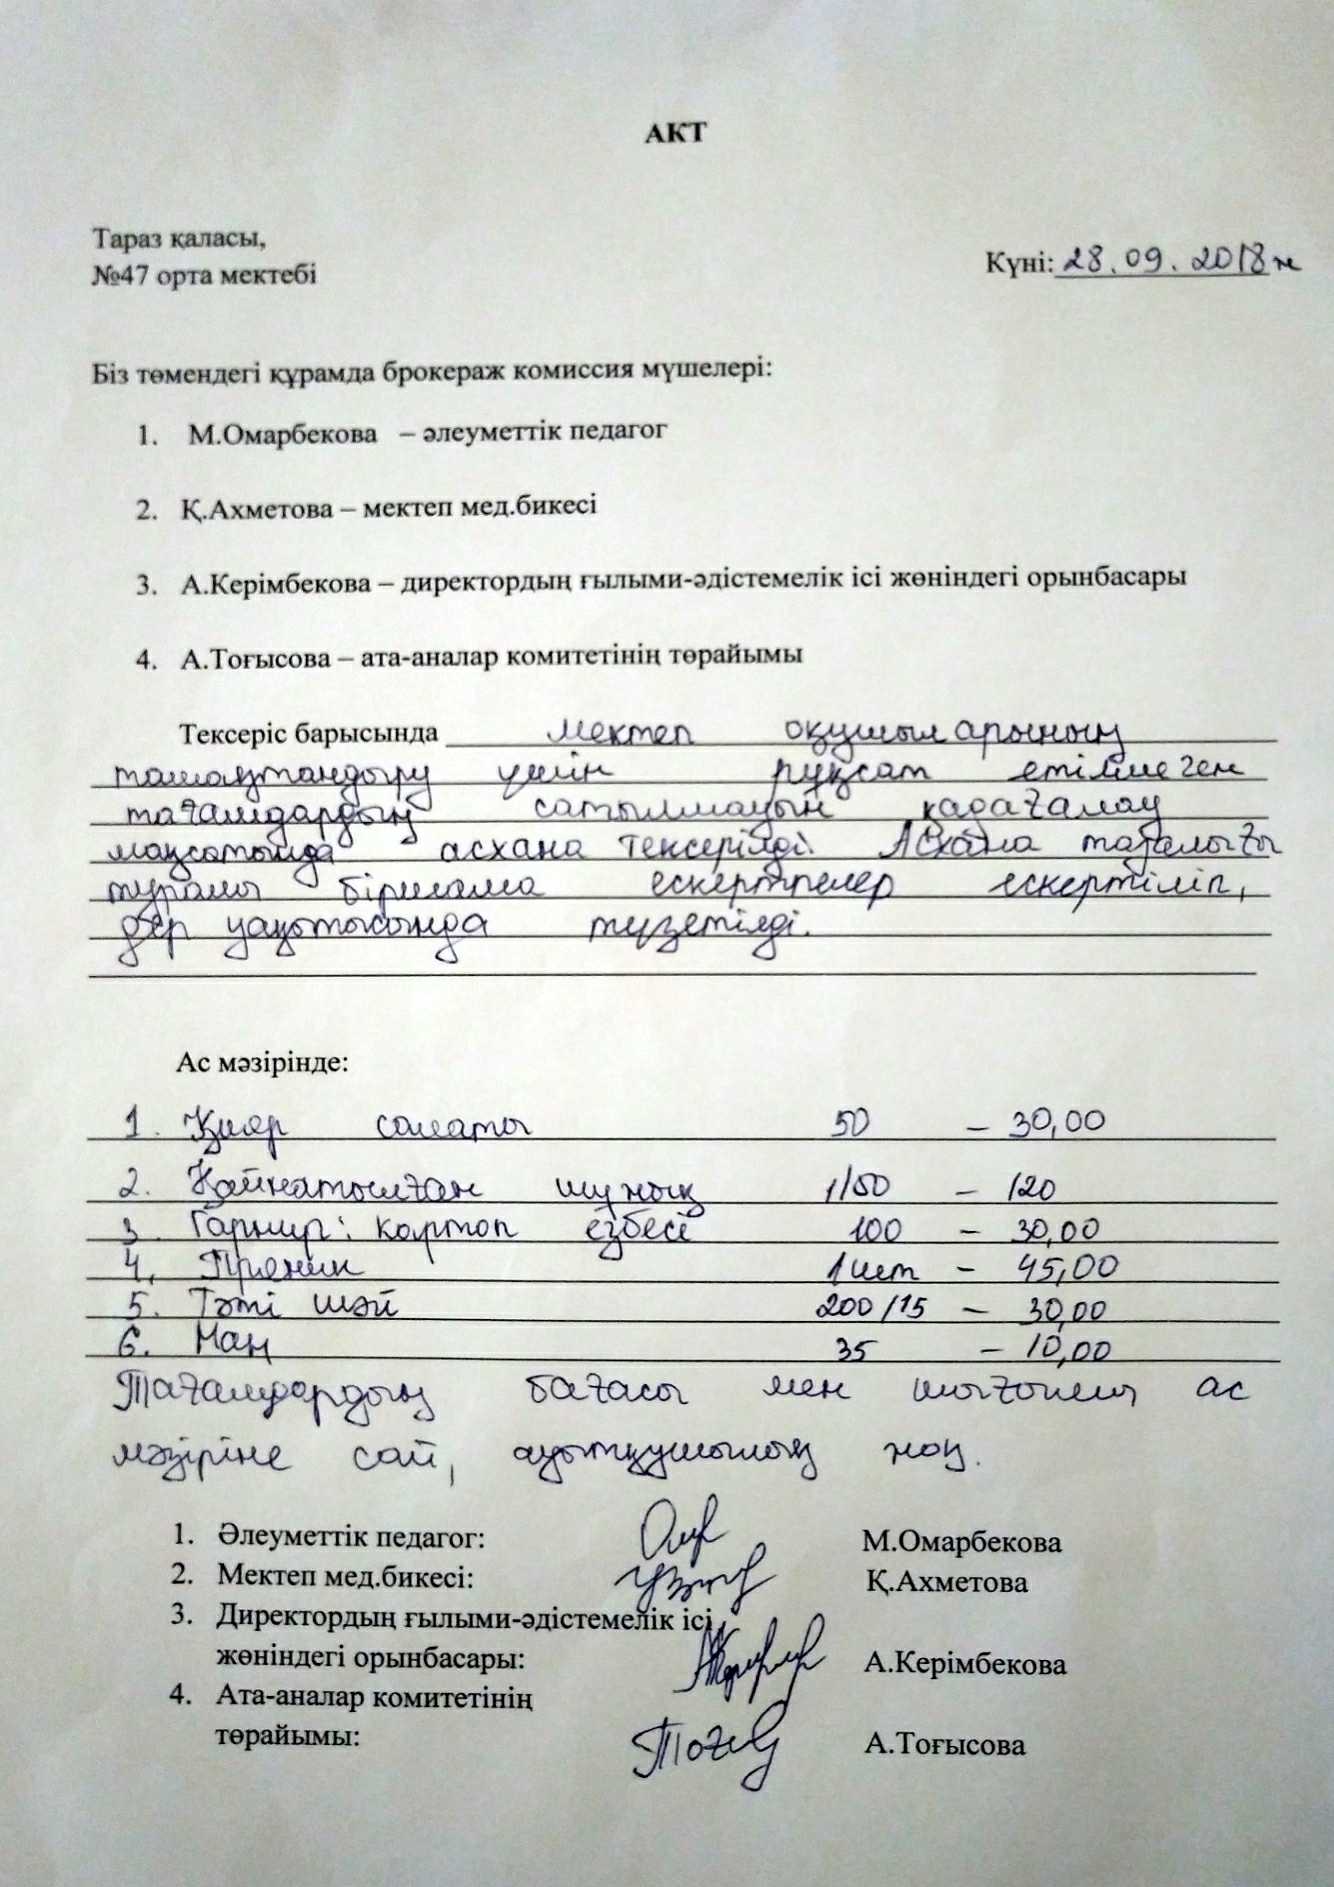 АКТ
Тараз қаласы,
№47 орта мектебі
Күні: 28.09.2018ж
Біз төмендегі құрамда брокераж комиссия мүшелері:
1. М.Омарбекова – әлеуметтік педагог
2. Қ.Ахметова – мектеп мед.бикесі
3. А.Керімбекова – директордың ғылыми-әдістемелік ісі жөніндегі орынбасары
4. А.Тоғысова – ата-аналар комитетінің төрайымы
Тексеріс барысында мектеп оқушыларының
тамақтандыру үшін рұқсат етілмеген
тағамдардың сатылмауын қадағалау
мақсатында асхана тексерілді. Асхана тазалығы
туралы бірнама ескертпелер ескертіліп,
дер уақытысында түзетілді.
Ас мәзірінде:
1. Қияр салаты 50 – 30,00
2. Қайнатылған шұжық 1/50 – 120
3 Гарнир: картоп езбесі 100 – 30,00
4, Пряник 1 шт – 45,00
5. Тәті шәй 200/15 – 30,00
6. Нан 35 – 10,00
Тағамдардың бағасы мен шығынын ас
мәзіріне сай, ауытқушылық жоқ.
1. Әлеуметтік педагог: М.Омарбекова
2. Мектеп мед.бикесі: Қ.Ахметова
3. Директордың ғылыми-әдістемелік ісі
жөніндегі орынбасары: А.Керімбекова
4. Ата-аналар комитетінің
төрайымы: А.Тоғысова